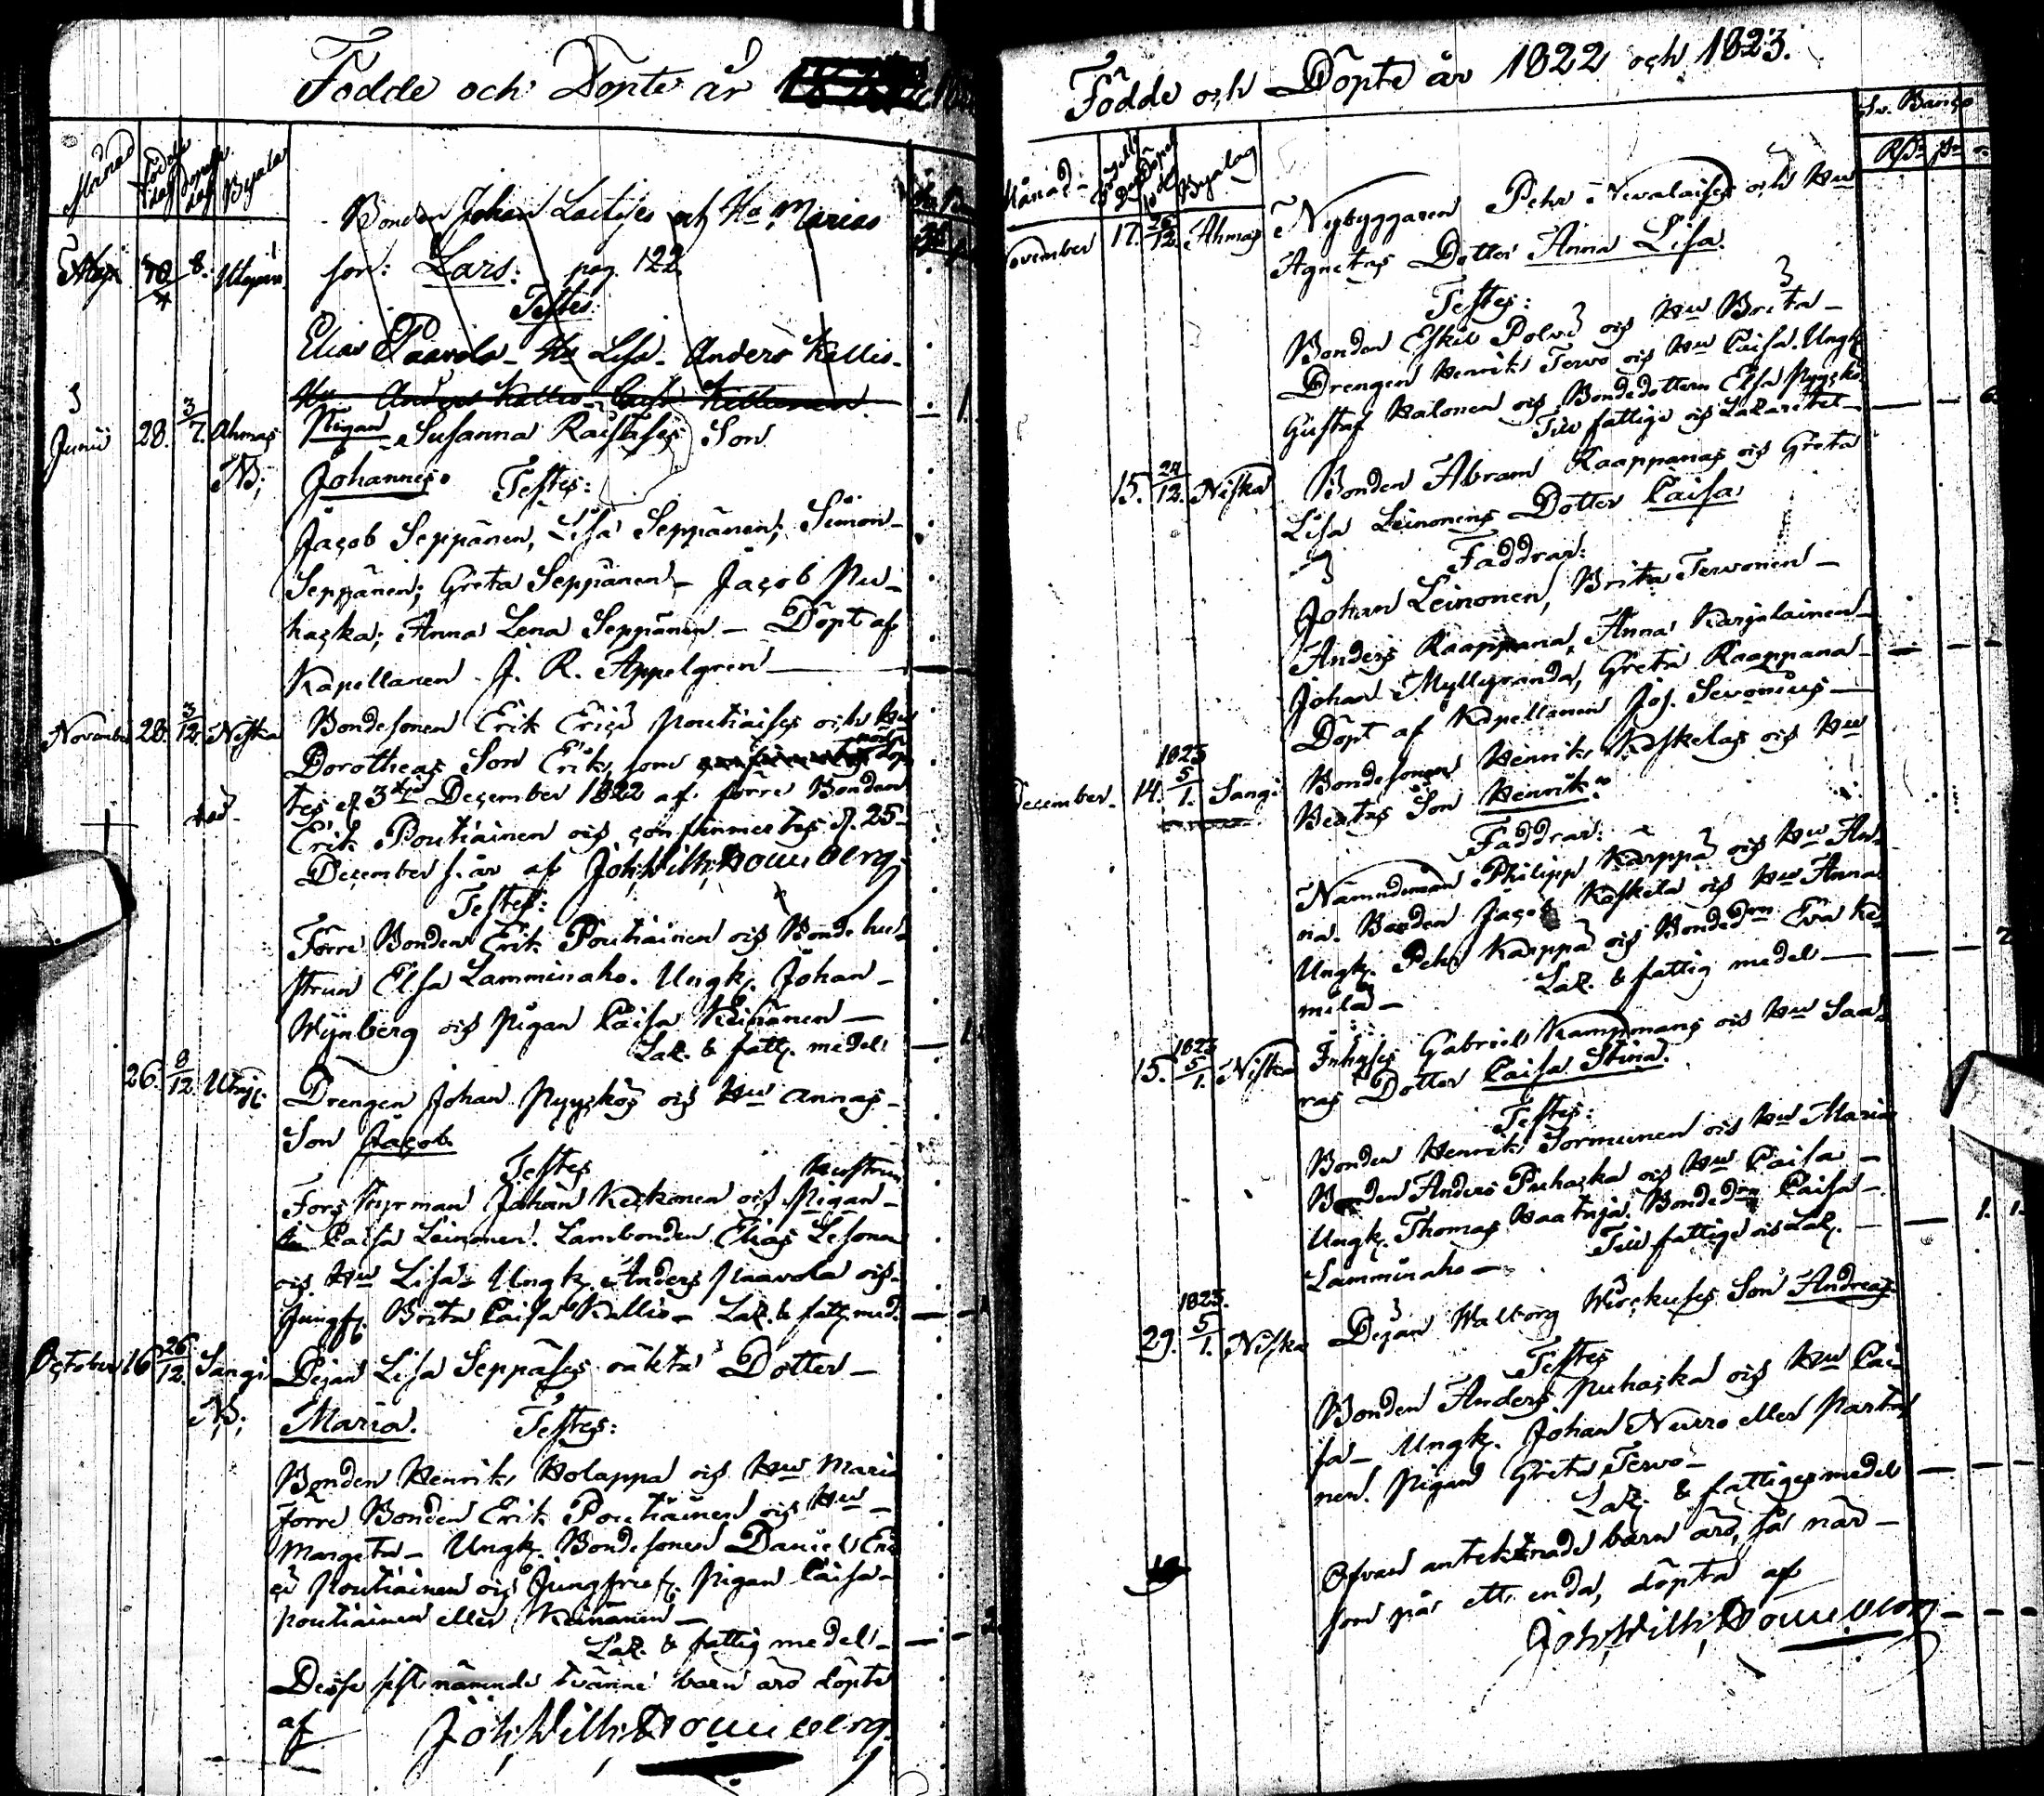 Födde och Döpte år
Månad Födelse dag Döpelse dag Byalag
Bonden Johan Laitises och Hu Marias
Maji 8. Utajärvi
son: Lars: pag. 122
Testes:
Elias Paavola - Hu Lisa - Anders Kallio -
Junii 28. 3/7. Ahmas Pigan Susanna Raistises Son
NB; Johannes. Testes:
Jacob Seppänen, Lisa Seppänen; Simon
Seppänen; Greta Seppänen - Jacob Pu-
hacka; Anna Lena Seppänen - Döpt af
Kapellanen J. R. Appelgren
November 28. 3/12. Niska Bondesonen Erik Poutiaises och Hu
Dorotheas Son Erik, som döp
tes d. 3 December 1822 af förre Bonden
Erik Poutiainen och confirmertes d. 25
December s. år af Joh, Wilh, Homberg
Testes:
Förre Bonden Erik Poutiainen och Bondehu-
strun Elsa Lamminaho. Ungk. Johan
Wynberg och Pigan Caisa Keinänen -
Laz. & fatt. medel
26. 8/12. Utajr. Drengen Johan Pyyckös och Hu Annas
Son Jacob
Testes Hustrun
Fors Styrman Johan Keckonen och Pigan
Caisa Leinonen. Lambonden Elias Lesonen
och Hu Lisa - Ungk. Anders Paavola och
Jungf. Brita Caisa Kallio - Laz. & fatt. med.
October 16 26/12. Sangi Pigan Lisa Seppäses oäkta Dotter -
NB; Maria. Testes:
Bonden Henrik Holappa och Hu Maria
förre Bonden Erik Poutiainen och Hu
Margeta - Ungk. Bondesonen Daniel Eri
ci Poutiainen och Jungfru Pigan Caisa
Poutiainen eller Keinänen -
Laz. & fattig medel
Desse sistnämnde tvänne barn äro döpte
af Joh, Wilh, Homberg
Födde och Döpte år 1822 och 1823.
Sv. Banco
Månad Födelse dag Döpelse dag Byalag
November 17. 26/12. Ahmas Nybyggaren Pehr Nevalaises och Hu
Agnetas Dotter Anna Lisa.
Testes:
Bonden Eskil Polvi och Hu Brita -
Drengen Henrik Tervo och Hu Caisa. Ungk.
Gustaf Halonen och Bondedottern Elsa Pyyckö
Till fattige och Lazaretet
15. 24/12. Niska Bonden Abram Kaappanas och Greta
Lisa Leinonens Dotter Caisa
Faddrar:
Johan Leinonen, Brita Tervonen -
Anders Kaappana, Anna Karjalainen -
Johan Myllyranda, Greta Kaappana
Döpt af Kapellanen Jos. Simonius
1823
December. 14. 5/1. Sangi Bondesonen Henrik Kaskelas och Hu
Beatas Son Henrik.
Faddrar:
Nämndeman Philipp Karppa och Hu An-
na. Bonden Jacob Kaskela och Hu Anna
Ungk. Pehr Karppa och Bondedn Eva Ke-
milä - Laz. & fattig medel
1823
15. 5/1. Niska Inhyses Gabriel Kampmans och Hu Saa-
ras Dotter Caisa Stina.
Testes:
Bonden Henrik Sormunen och Hu Maria
Bonden Anders Puhacka och Hu Caisa -
Ungk. Thomas Haataja. Bondedn Caisa
Lamminaho - Till fattige och Laz.
1823.
29. 5/1. Niska Pigan Walborg Wirckuses Son Andreas
Testes
Bonden Anders Puhacka och Hu Cai-
sa - Ungk. Johan Nurro eller Parta
nen. Pigan Greta Tervo -
Laz. & fattiges medel
Ofvan antecknade barn äro, så när
som på ett enda, döpta af
Joh, Wilh, Homberg